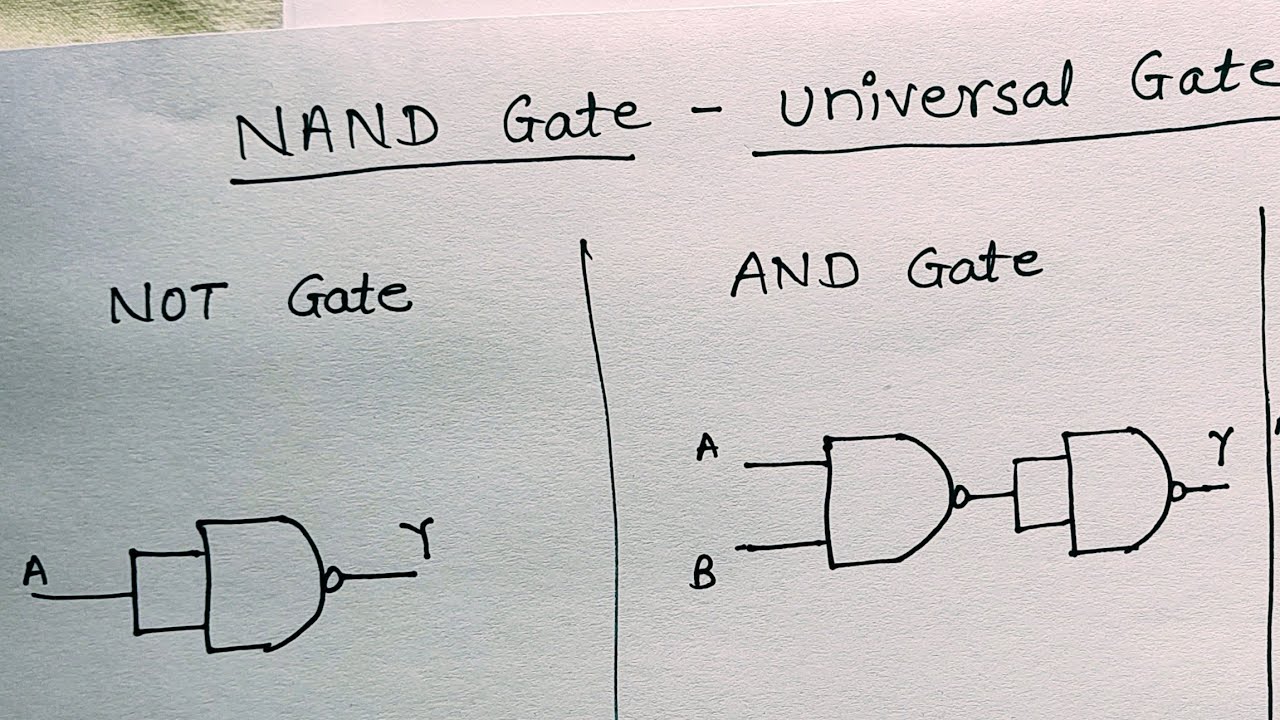 NAND Gate - Universal Gate
NOT Gate
AND Gate
A
Y
A
B
Y